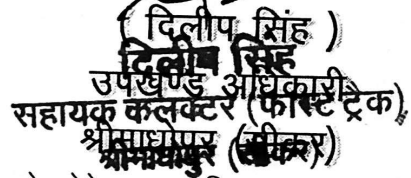 ( दिलीप सिंह )
दिलीप सिंह
उपखण्ड अधिकारी
सहायक कलक्टर (फास्ट ट्रैक)
श्रीमाधोपुर (सीकर)
श्रीमाधोपुर (सीकर)